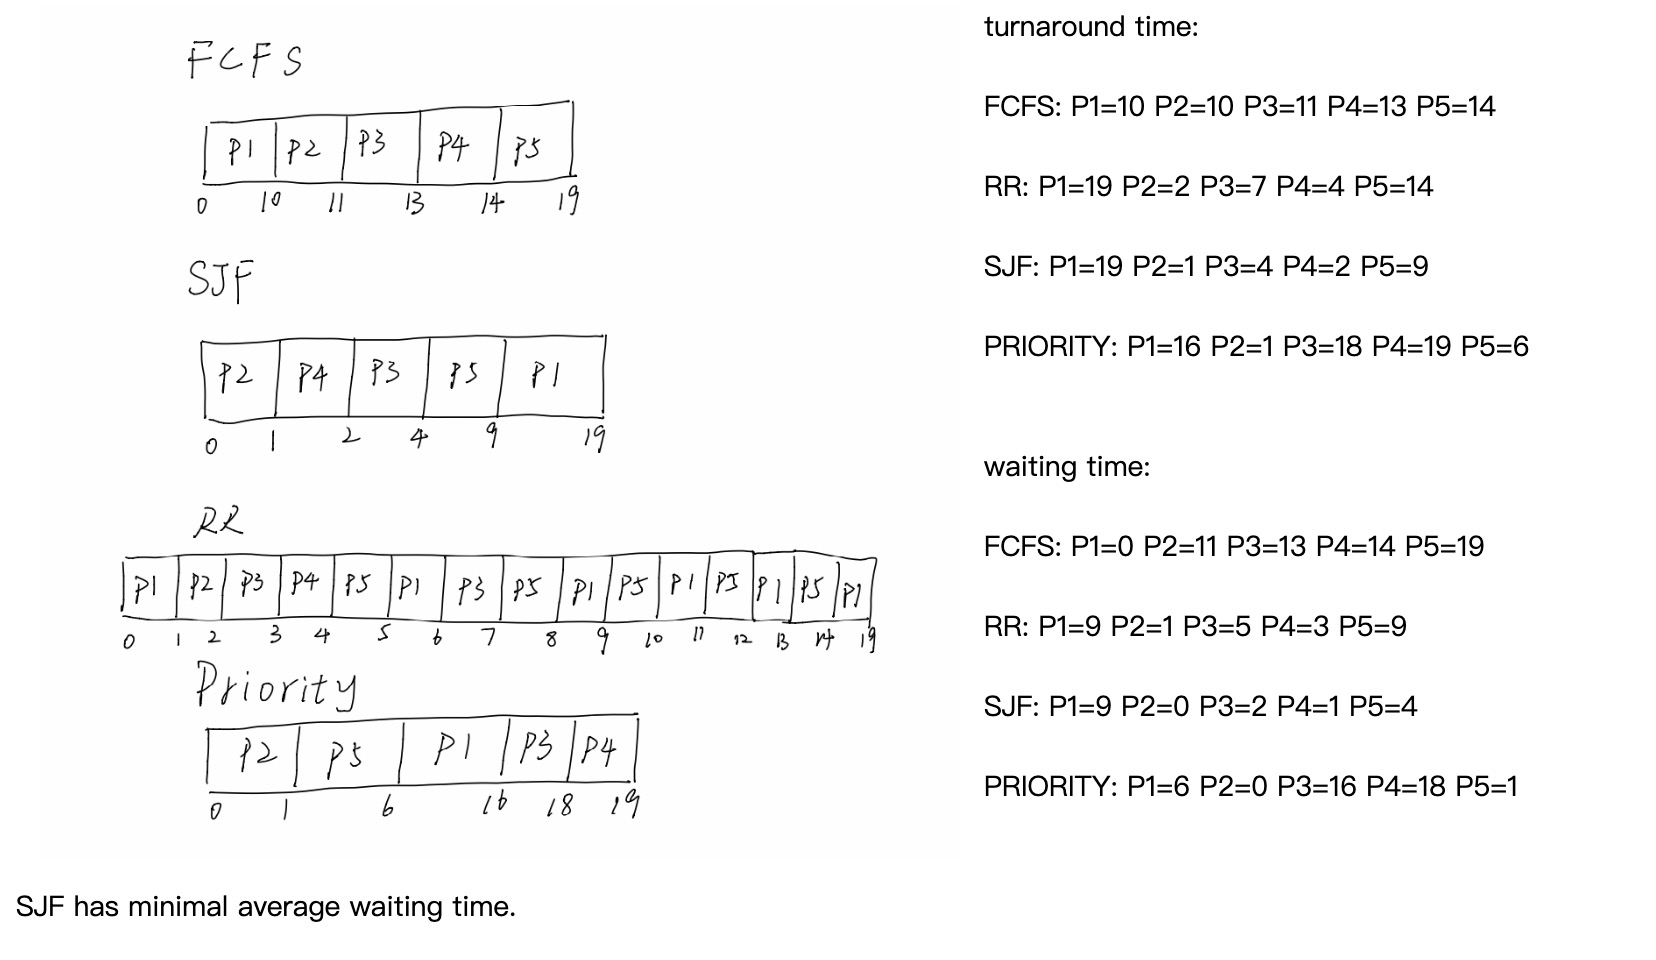 FCFS
P1 P2 P3 P4 P5
0 10 11 13 14 19
SJF
P2 P4 P3 P5 P1
0 1 2 4 9 19
RR
P1 P2 P3 P4 P5 P1 P3 P5 P1 P5 P1 P5 P1 P5 P1
0 1 2 3 4 5 6 7 8 9 10 11 12 13 14 19
Priority
P2 P5 P1 P3 P4
0 1 6 16 18 19
turnaround time:
FCFS: P1=10 P2=10 P3=11 P4=13 P5=14
RR: P1=19 P2=2 P3=7 P4=4 P5=14
SJF: P1=19 P2=1 P3=4 P4=2 P5=9
PRIORITY: P1=16 P2=1 P3=18 P4=19 P5=6
waiting time:
FCFS: P1=0 P2=11 P3=13 P4=14 P5=19
RR: P1=9 P2=1 P3=5 P4=3 P5=9
SJF: P1=9 P2=0 P3=2 P4=1 P5=4
PRIORITY: P1=6 P2=0 P3=16 P4=18 P5=1
SJF has minimal average waiting time.